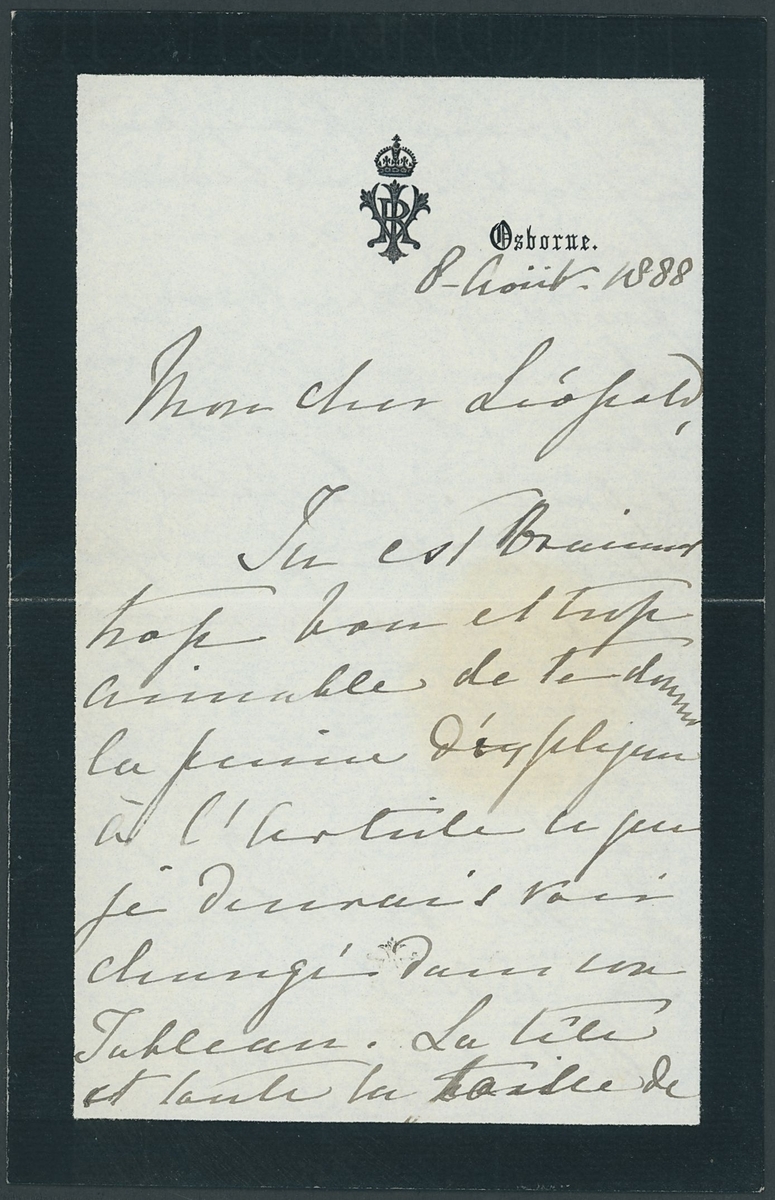 VRI
Osborne.
8 - Août. 1888
Mon cher Léopold,
Tu est vraiment
trop bon et trop
aimable de te donner
la peine d'expliquer
à l'Artiste ce que
je désirais voir
changé dans son
Tableau. La tête
et toute la taille de